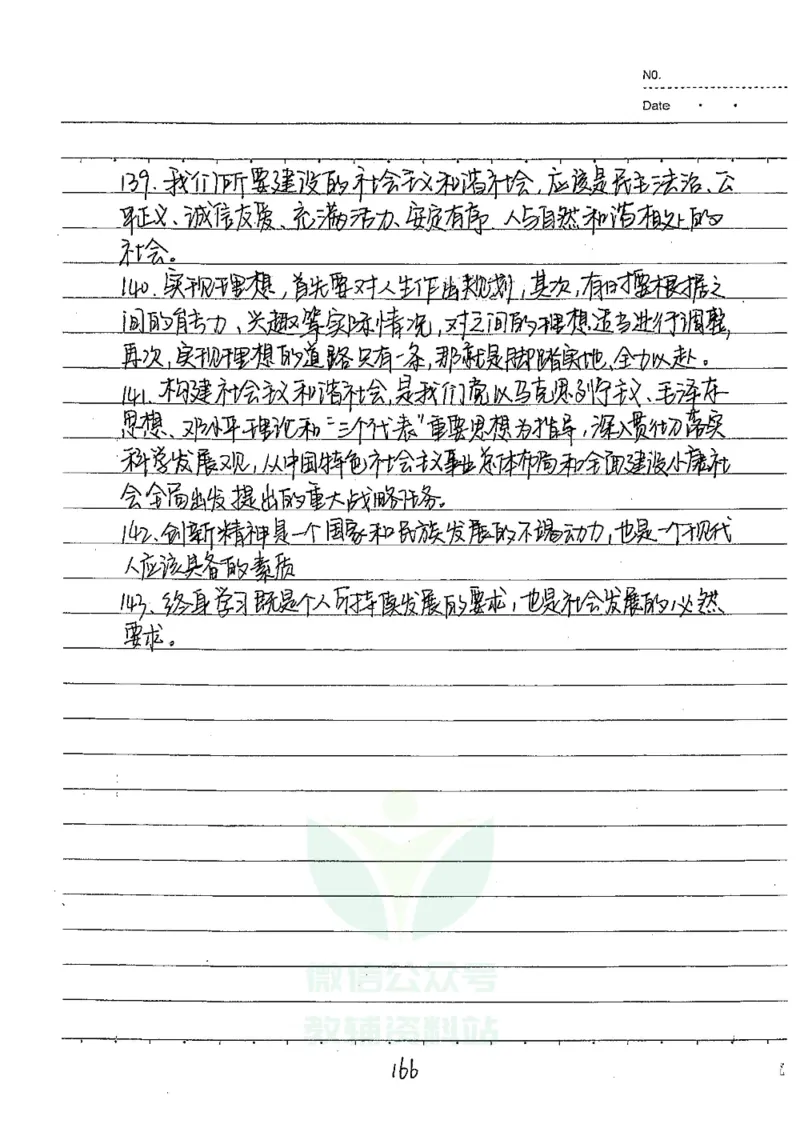 NO.
Date
139、我们所要建设的社会主义和谐社会,应该是民主法治、公
平正义、诚信友爱、充满活力、安定有序、人与自然和谐相处的
社会。
140、实现理想,首先要对人生作出规划,其次,有时要根据之
间的能力、兴趣等实际情况,对之间的理想适当进行调整,
再次,实现理想的道路只有一条,那就是脚踏实地、全力以赴。
141、构建社会主义和谐社会,是我们党以马克思列宁主义、毛泽东
思想、邓小平理论和“三个代表”重要思想为指导,深入贯彻落实
科学发展观,从中国特色社会主义事业总体布局和全面建设小康社
会全局出发提出的重大战略任务。
142、创新精神是一个国家和民族发展的不竭动力,也是一个现代
人应该具备的素质
143、终身学习既是个人可持续发展的要求,也是社会发展的必然
要求。
微信公众号
教辅资料站
166